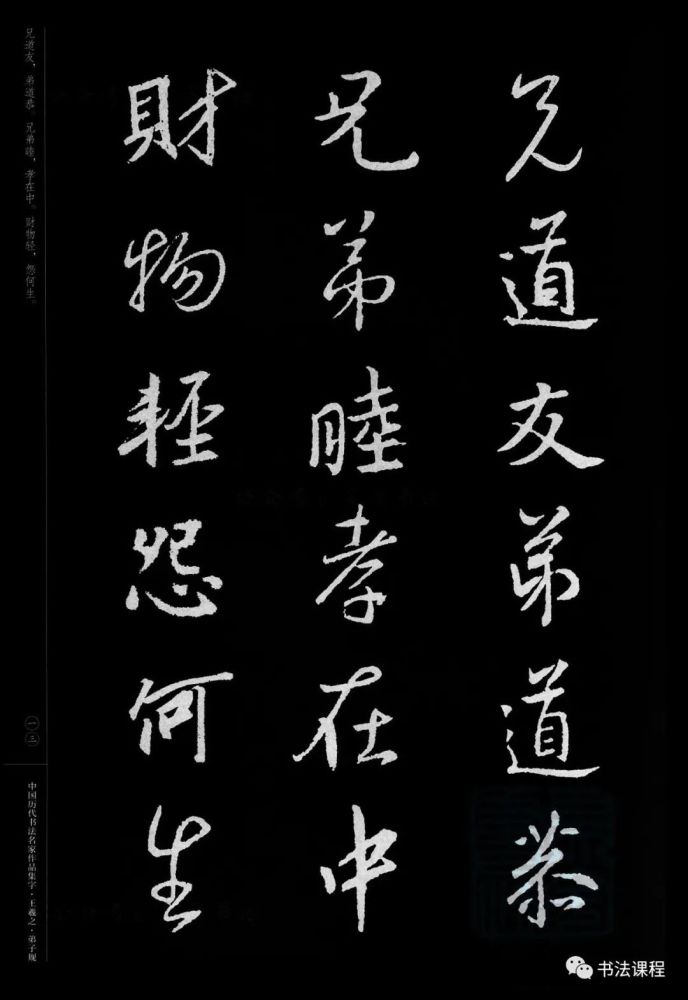 兄道友弟道恭
兄弟睦孝在中
財物輕怨何生
兄道友，弟道恭。兄弟睦，孝在中。财物轻，怨何生。
一三
中国历代书法名家作品集字·王羲之·弟子规
书法课程